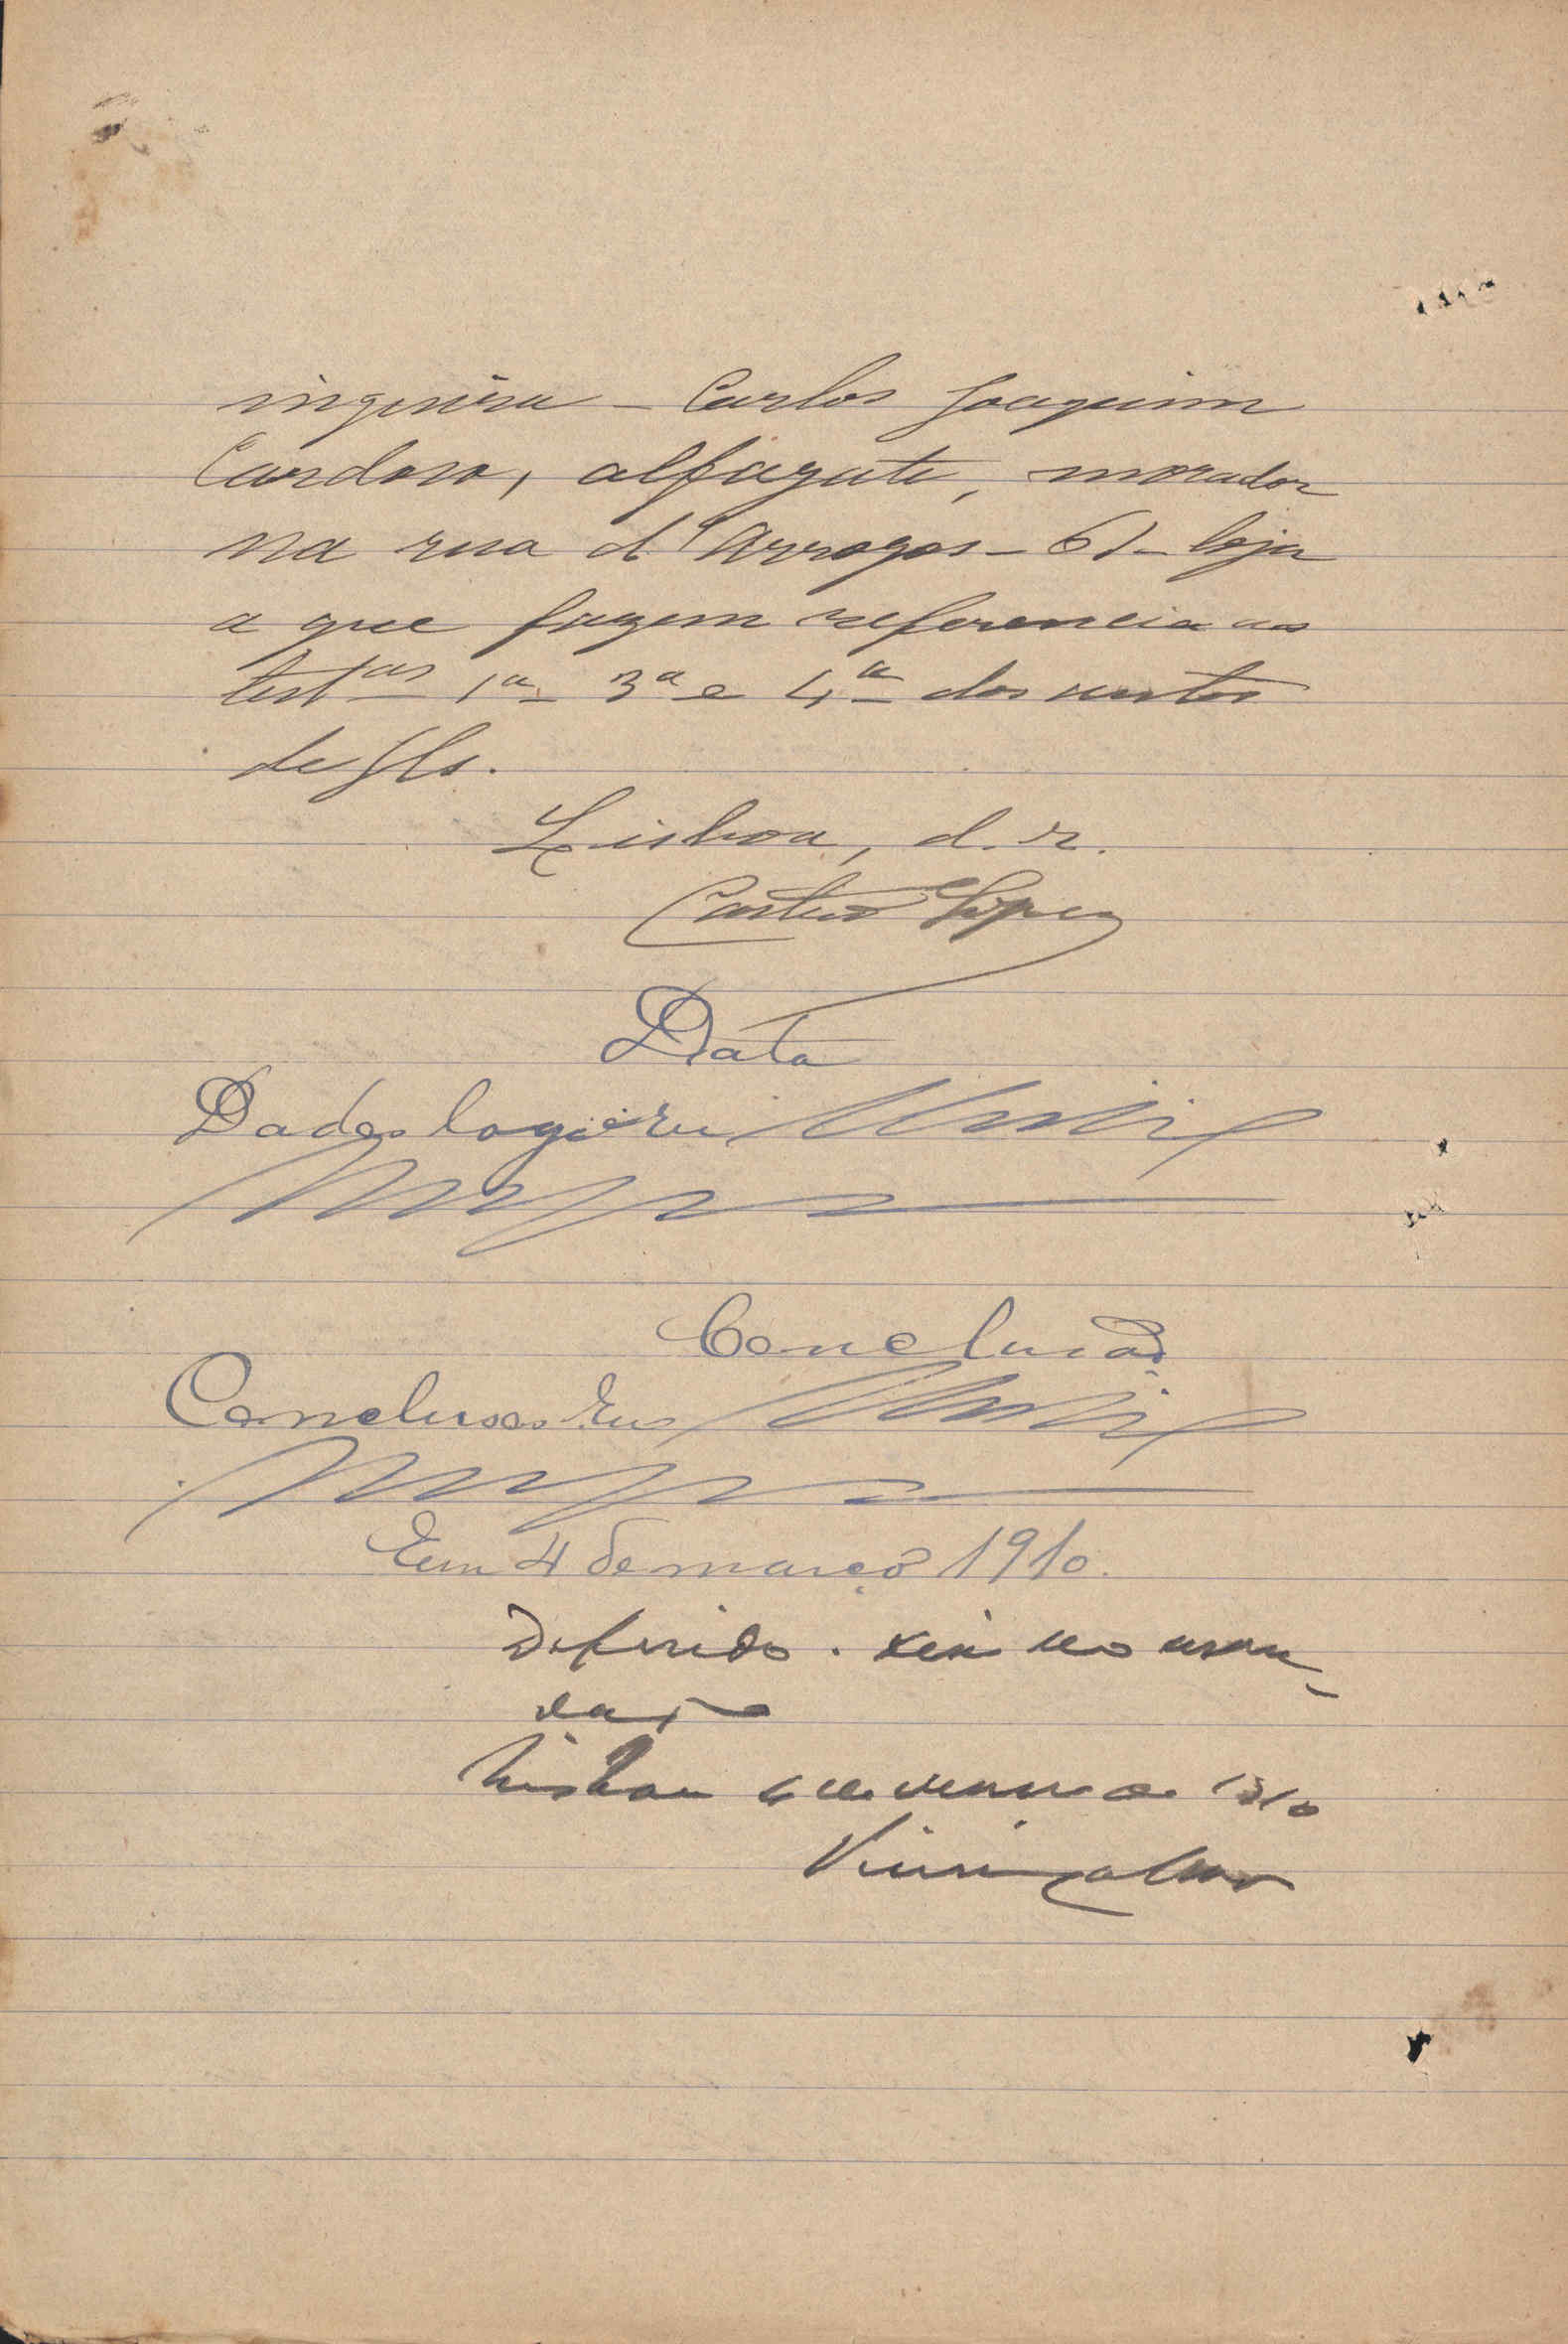 ingenira - Carlos Joaquim
Cardoso, alfayate, morador
na rua d'Arroyos - 61 - loja
a que fazem referencia as
testas 1a 3a e 4a dos autos
de fls.
Lisboa, d. r.
Castro Lopes
Data
Dados logo Eu
Conclusão
Conclusos Eu
Em 4 de março 1910.
Deferido.
Lisboa 4 de março de 1910